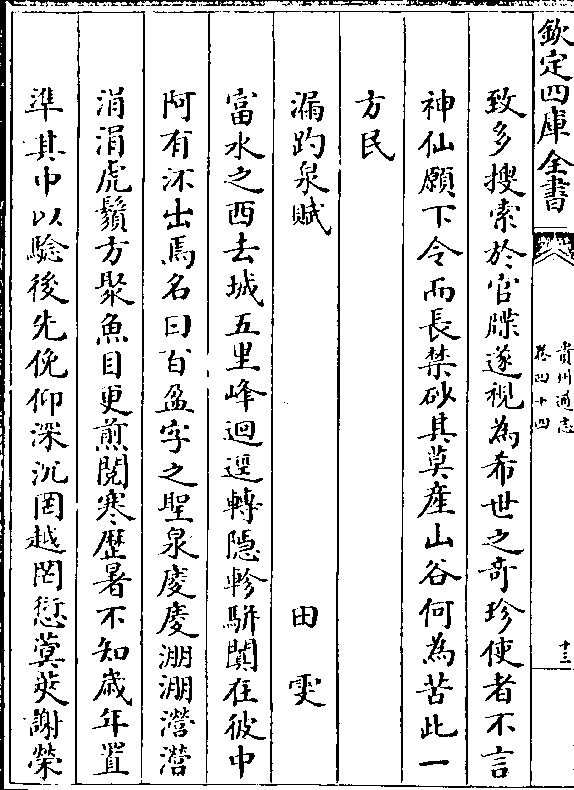 欽定四庫全書
貴州通志
卷四十四
十三
致多搜索於官牒遂視為希世之奇珍使者不言
神仙願下令而長禁砂其莫産山谷何為苦此一
方民
漏趵泉賦 田雯
富水之西去城五里峰迴逕轉隱軫駢闐在彼中
阿有沠出焉名曰百盈字之聖泉㶁㶁淜淜灂灂
涓涓虎鬚方聚魚目更煎閱寒歴暑不知歳年置
準其中以驗後先俛仰深沉罔越罔愆蓂莢謝榮